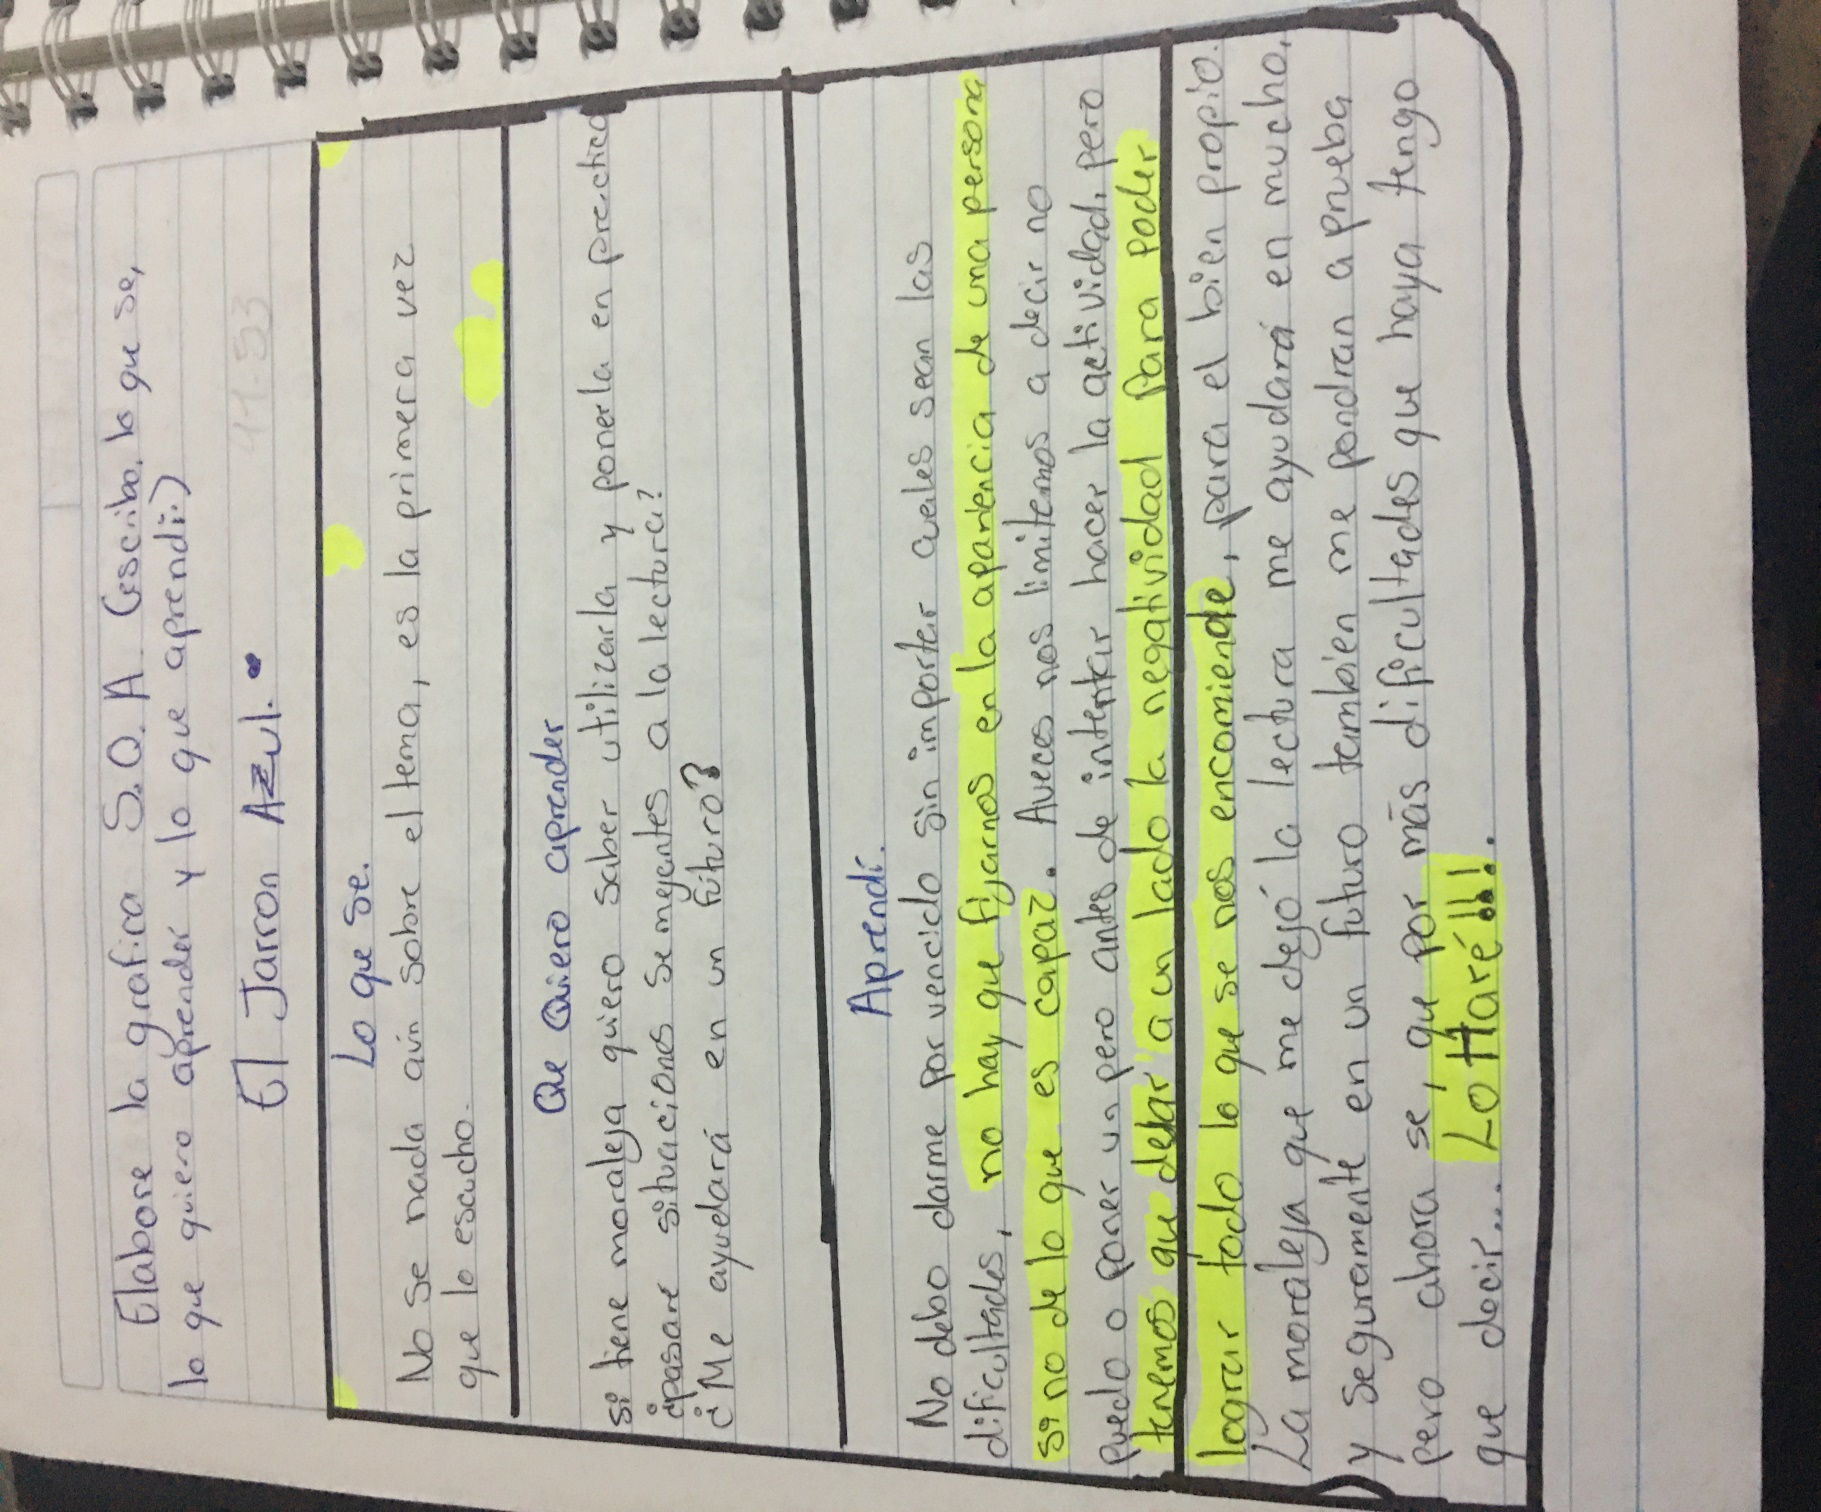 Elabore la grafica S.Q.A (escribo, lo que se,
lo que quiero aprender y lo que aprendi.)
El Jarron Azul.
Lo que se.
No se nada aún sobre el tema, es la primera vez
que lo escucho.
Que Quiero aprender
si tiene moraleja quiero saber utilizarla y ponerla en practica
¿pasare situacions semejentes a la lectura?
¿Me ayudará en un futuro?
Aprendí.
No debo darme por vencido sin importer cuales sean las
dificultades, no hay que fijarnos en la apariencia de una persona
si no de lo que es capaz. Aveces nos limitemos a decir no
puedo o poner un pero antes de intentar hacer la actividad, pero
tenemos que dejar a un lado la negatividad para poder
lograr todo lo que se nos encomiende, para el bien propio.
La moraleja que me dejó la lectura me ayudará en mucho,
y seguramente en un futuro tambien me pondran a prueba
pero ahora se, que por más dificultades que haya tengo
que decir.... Lo Haré!!!.